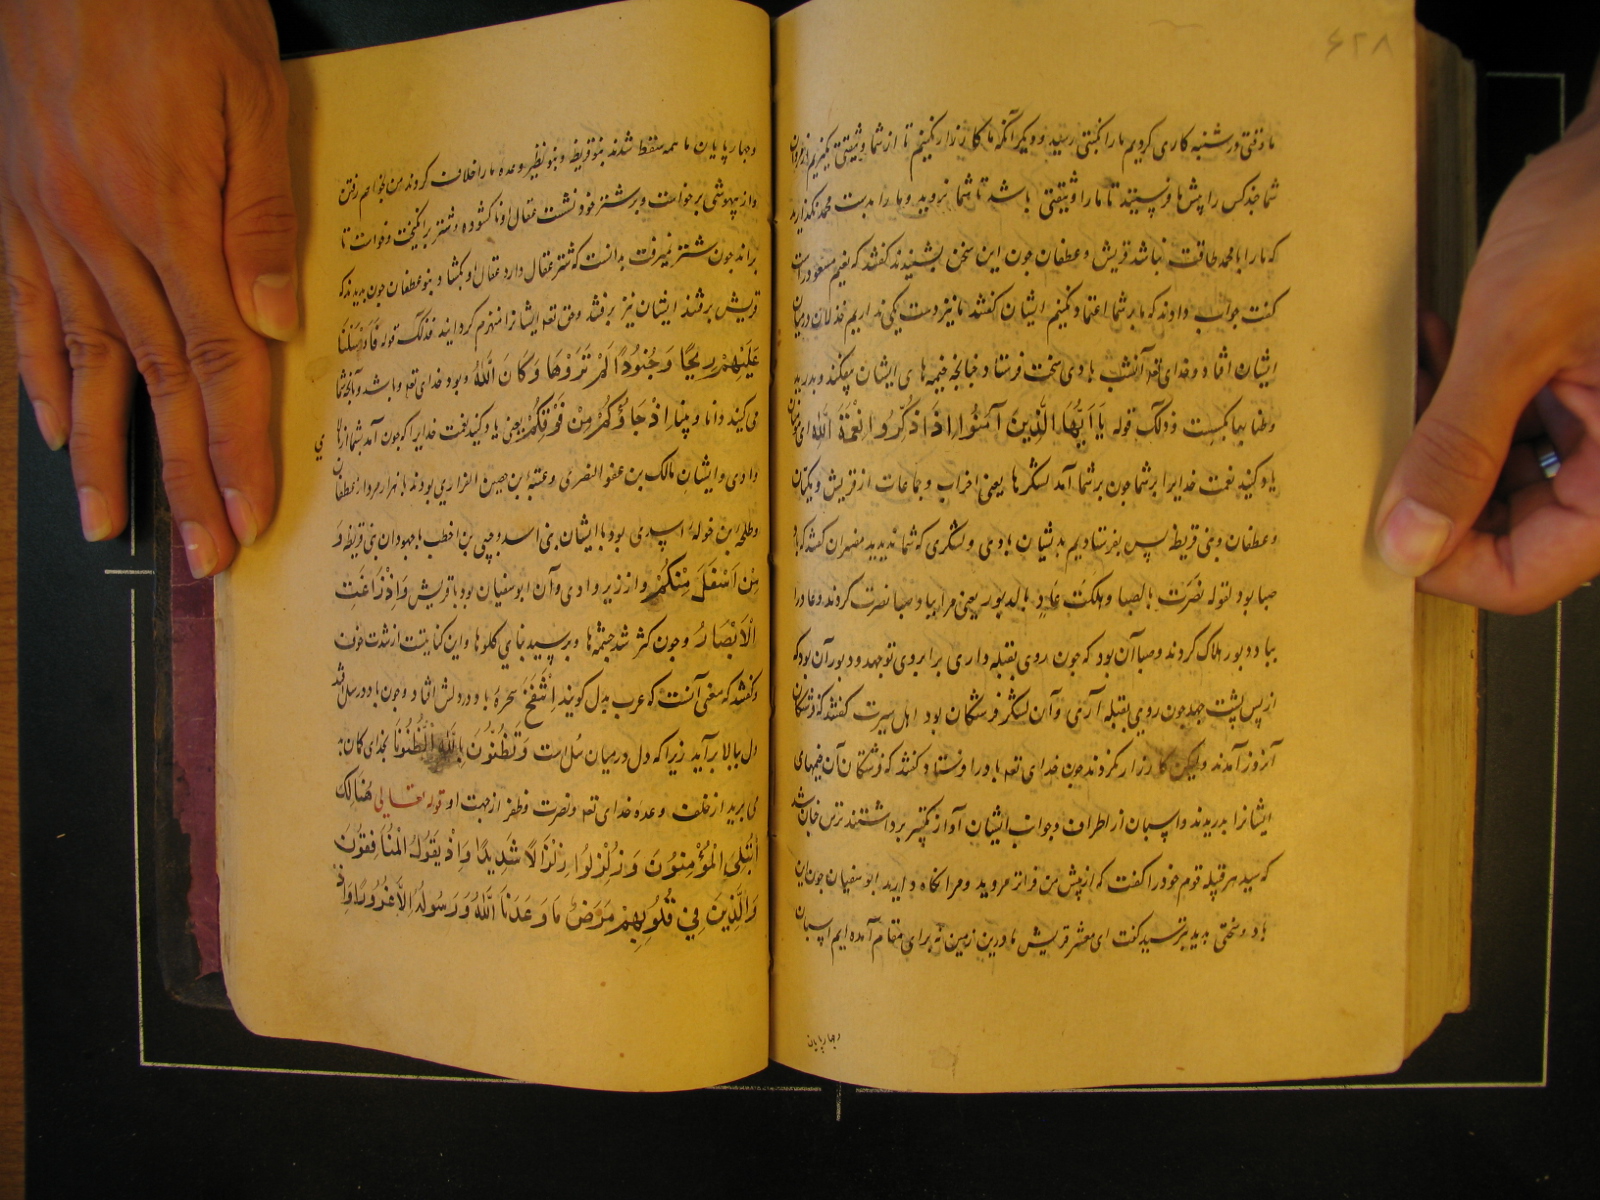 ۶۲۸
ما وقتی در شنبه کاری کردیم ما را نکبتی رسید و دیگر آنکه ما کارزار نکنیم تا از شما وثیقتی نگیریم
شما چند کس را پیش ما فرستید تا ما را وثیقتی باشد تا شما نروید و ما را بدست محمد نگذارید
که ما را با محمد طاقت نباشد قریش و غطفان چون این سخن بشنیدند گفتند که نعیم مسعود راست
گفت جواب دادند که ما بر شما اعتماد نکنیم ایشان گفتند ما نیز دست یکی نداریم خذلان در میان
ایشان افتاد و خدای تعه آن شب بادی سخت فرستاد چنانچه خیمه های ایشان بیفکند و بدرید
و طنابها بگسست و ذلک قوله یَا اَیُّهَا الَّذِینَ آمَنُوا اذْکُرُوا نِعْمَةَ اللَّهِ ای مؤمنان
یاد کنید نعمت خدایرا بر شما چون بر شما آمد لشکرها یعنی احزاب و جماعات از قریش
و غطفان و بنی قریظه پس بفرستادیم بدیشان بادی و لشکری که شما ندیدید مفسران گفتند که باد
صبا بود لقوله نُصِرَت بالصبا و هلکت عادٍ بالدبور یعنی مرا بباد صبا نصرت کردند و عاد را
بباد دبور هلاک کردند و صبا آن بود که چون روی بقبله داری برابر روی تو جهد و دبور آن بود که
از پس پشت جهد چون روی بقبله آری و آن لشکر فرشتگان بود اهل سیرت گفتند که فرشتگان
آنروز آمدند ولیکن کارزار نکردند چون خدای تعه باد را فرستاد گفتند که فرشتگان آن خیمهای
ایشانرا بدریدند و اسبان از اطراف و جوانب ایشان آواز تکبیر برداشتند ترس چنان شد
که سید هر قبیله قوم خود را گفت که از پیش من فراتر مروید و مرا نگاه دارید ابو سفیان چون این
باد و سختی بدید بترسید گفت ای معشر قریش ما درین زمین نه برای مقام آمده ایم اسبان
و چهارپایان
و چهارپایان ما همه سقط شدند بنو قریظه و بنو نظیر وعده ما را خلاف کردند من خواهم رفتن
و از بیهوشی برخواست و بر شتر خود نشست عقال او نا گشوده و شتر برانگیخت و خواست تا
براند چون شتر نمیرفت بدانست که شتر عقال دارد عقال او بگشاد و بنو غطفان چون بدیدند که
قریش برفتند ایشان نیز برفتند و حق تعه ایشانرا منهزم گردانید فذلک قوله فَاَرْسَلْنَا
عَلَیْهِمْ رِیحًا وَجُنُودًا لَمْ تَرَوْهَا وَکَانَ اللَّهُ و بود خدای تعه و باشد و بآنچه شما
می کنید دانا و بینا اِذْ جَاؤُکُمْ مِنْ فَوْقِکُمْ یعنی یاد کنید نعمت خدایرا که چون آمد بشما از بالای
وادی و ایشان مالک بن عوف النصری و عیینه ابن حصین الفزاری بودند با هزار مرد از غطفان
و طلحه ابن خویلد اسدی بود با ایشان بنی اسد و حیی بن اخطب با جهودان بنی قریظه وَ
مِنْ اَسْفَلَ مِنْکُمْ و از زیر وادی و آن ابو سفیان بود با قریش وَاِذْ زَاغَتِ
الْاَبْصَارُ و چون کژ شد چشمها و برسید بنای گلوها و این کنایتست از شدت خوف
و گفتند که معنی آنست که عرب بددل گویند اِنْتَفَخَ سَحْرَهُ باد در دلش افتاد و چون باد در دل افتد
دل ببالا برآید زیرا که دل در میان سل است وَتَظُنُّونَ بِاللَّهِ الظُّنُونَا بخدای گمان بد
می برید از خلف وعده خدای تعه و نصرت و ظفر از جهت او قوله تعالی هُنَالِکَ
ابْتُلِیَ الْمُؤْمِنُونَ وَزُلْزِلُوا زِلْزَالًا شَدِیدًا وَاِذْ یَقُولُ الْمُنَافِقُونَ
وَالَّذِینَ فِی قُلُوبِهِمْ مَرَضٌ مَا وَعَدَنَا اللَّهُ وَرَسُولُهُ اِلَّا غُرُورًا وَاِذْ